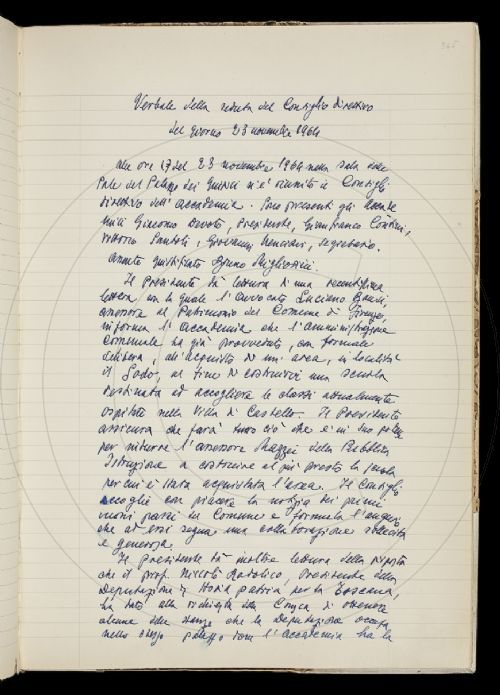 365
Verbale della seduta del Consiglio direttivo
del giorno 23 novembre 1964
Alle ore 17 del 23 novembre 1964 nella sala delle
Pale del Palazzo dei Giudici si è riunito il Consiglio
direttivo dell'Accademia. Sono presenti gli Accade
mici Giacomo Devoto, Presidente, Gianfranco Contini,
Vittorio Santoli, Giovanni Nencioni, segretario.
Assente giustificato Bruno Migliorini.
Il Presidente dà lettura di una recentissima
lettera, con la quale l'avvocato Luciano
assessore al Patrimonio del Comune di Firenze,
informa l'Accademia che l'amministrazione
comunale ha già provveduto, con formale
delibera, all'acquisto di un'area, in località
il Sodo, al fine di costruirvi una scuola
destinata ad accogliere le classi attualmente
ospitate nella Villa di Castello. Il Presidente
assicura che farà tutto ciò che è in suo potere
per indurre l'assessore Mazzei della Pubblica
Istruzione a costruire al più presto la scuola
per cui è stata acquistata l'area. Il Consiglio
accoglie con piacere la notizia dei primi
nuovi passi del Comune e formula l'augurio
che ad essi segua una collaborazione sollecita
e generosa.
Il presidente dà inoltre lettura della risposta
che il prof. Niccolò Rodolico, Presidente della
Deputazione di Storia patria per la Toscana,
ha dato alla richiesta della Crusca di ottenere
alcune delle stanze che la Deputazione occupa
nello stesso palazzo dove l'Accademia ha la